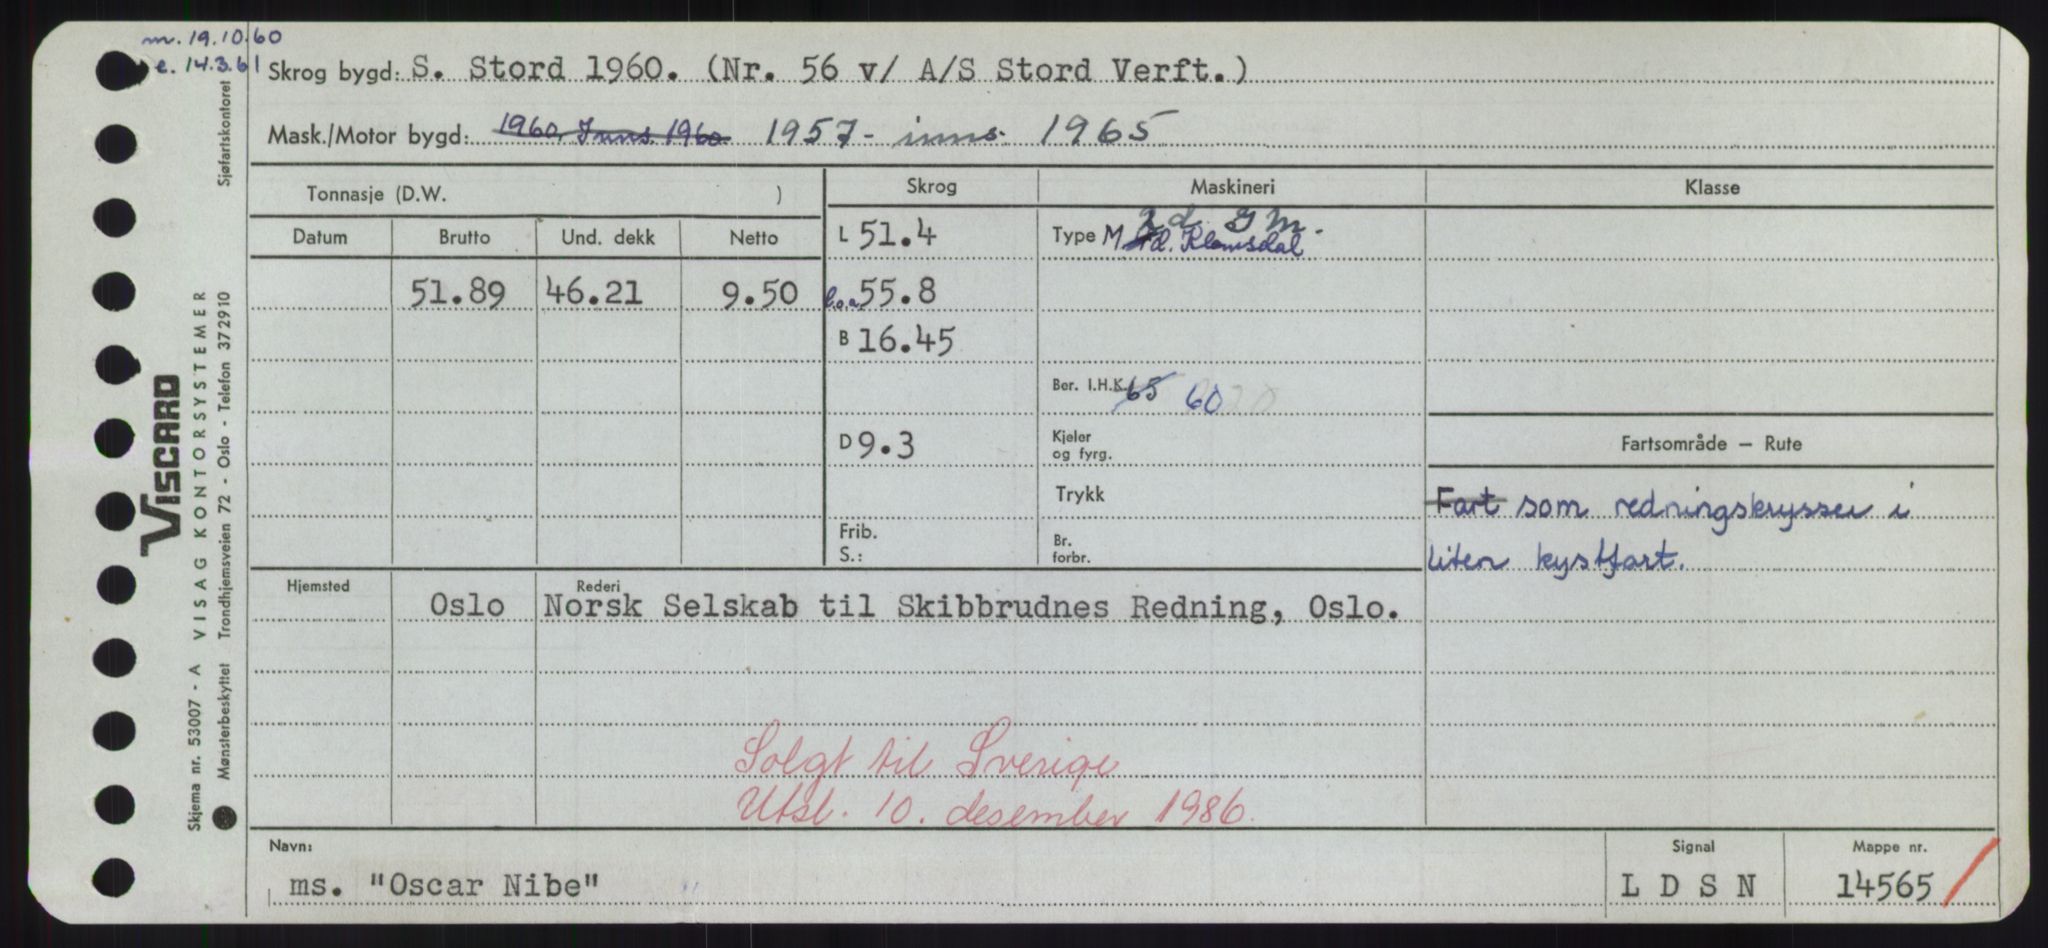 m. 19.10.60
e. 14.3.61
Skrog bygd: S. Stord 1960. (Nr. 56 v/ A/S Stord Verft.)
Mask./Motor bygd: 1960. Inns. 1960 1957 - inns. 1965
Tonnasje (D.W. )
Skrog
Maskineri
Klasse
Datum
Brutto
Und. dekk
Netto
L 51.4
Type M 2 d. G M.
d. Klemsdal
51.89 46.21 9.50
l.o.a. 55.8
B 16.45
Ber. I.H.K. 65 60
D 9.3
Kjeler
og fyrg.
Fartsområde – Rute
Trykk
Fart som redningskrysser i
liten kystfart.
Frib.
S.:
Br.
forbr.
Hjemsted
Rederi
Oslo Norsk Selskab til Skibbrudnes Redning, Oslo.
Solgt til Sverige
Utsl. 10. desember 1986.
Navn:
ms. "Oscar Nibe"
Signal
L D S N
Mappe nr.
14565
VISCARD
Skjema nr. 53007 - A VISAG KONTORSYSTEMER
Mønsterbeskyttet Trondhjemsveien 72 - Oslo - Telefon 372910 Sjøfartskontoret